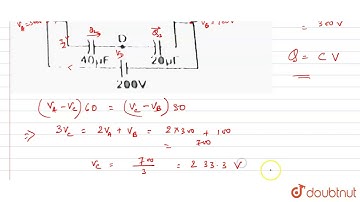 = 300 V
D
40μF
20μF
200V
Q = C V
(V_A - V_C) 60 = (V_C - V_B) 30
⇒ 3V_C = 2V_A + V_B = 2×300 + 100
= 700
V_C = 700/3 = 233.3 V
doubtnut